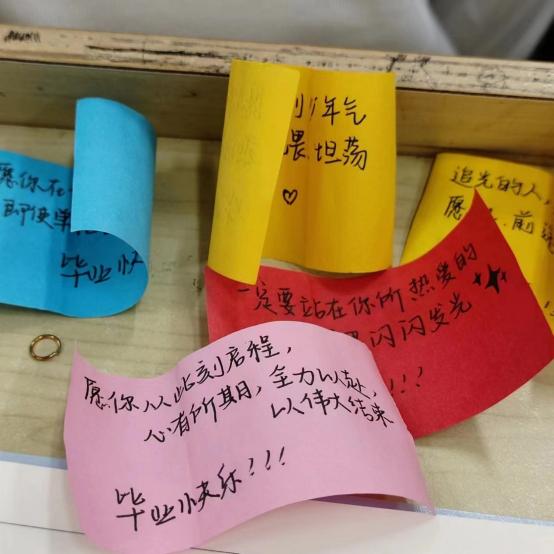 愿你在
即使单
毕业快
少年气
畏.坦荡
♡
追光的人,
愿
前
一定要站在你所热爱的
闪闪发光
!!!
愿你从此刻启程,
心有所期,全力以赴,
以伟大结束
毕业快乐!!!